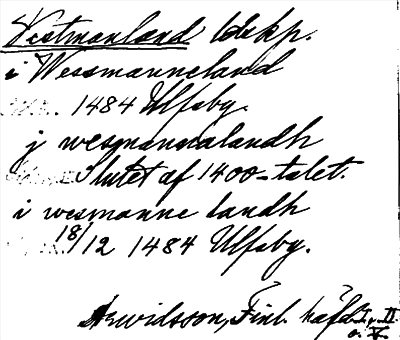 Westmanland ldskp.
i Wessmanneland
1484 Ulfsby.
j wesmannalandh
Slutet af 1400-talet.
i wesmanne landh
18/12 1484 Ulfsby.
Arwidsson, Finl. häfd. I, II
o. V.